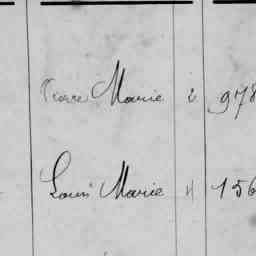 Pierre Marie 2 978
Louis Marie 4 156